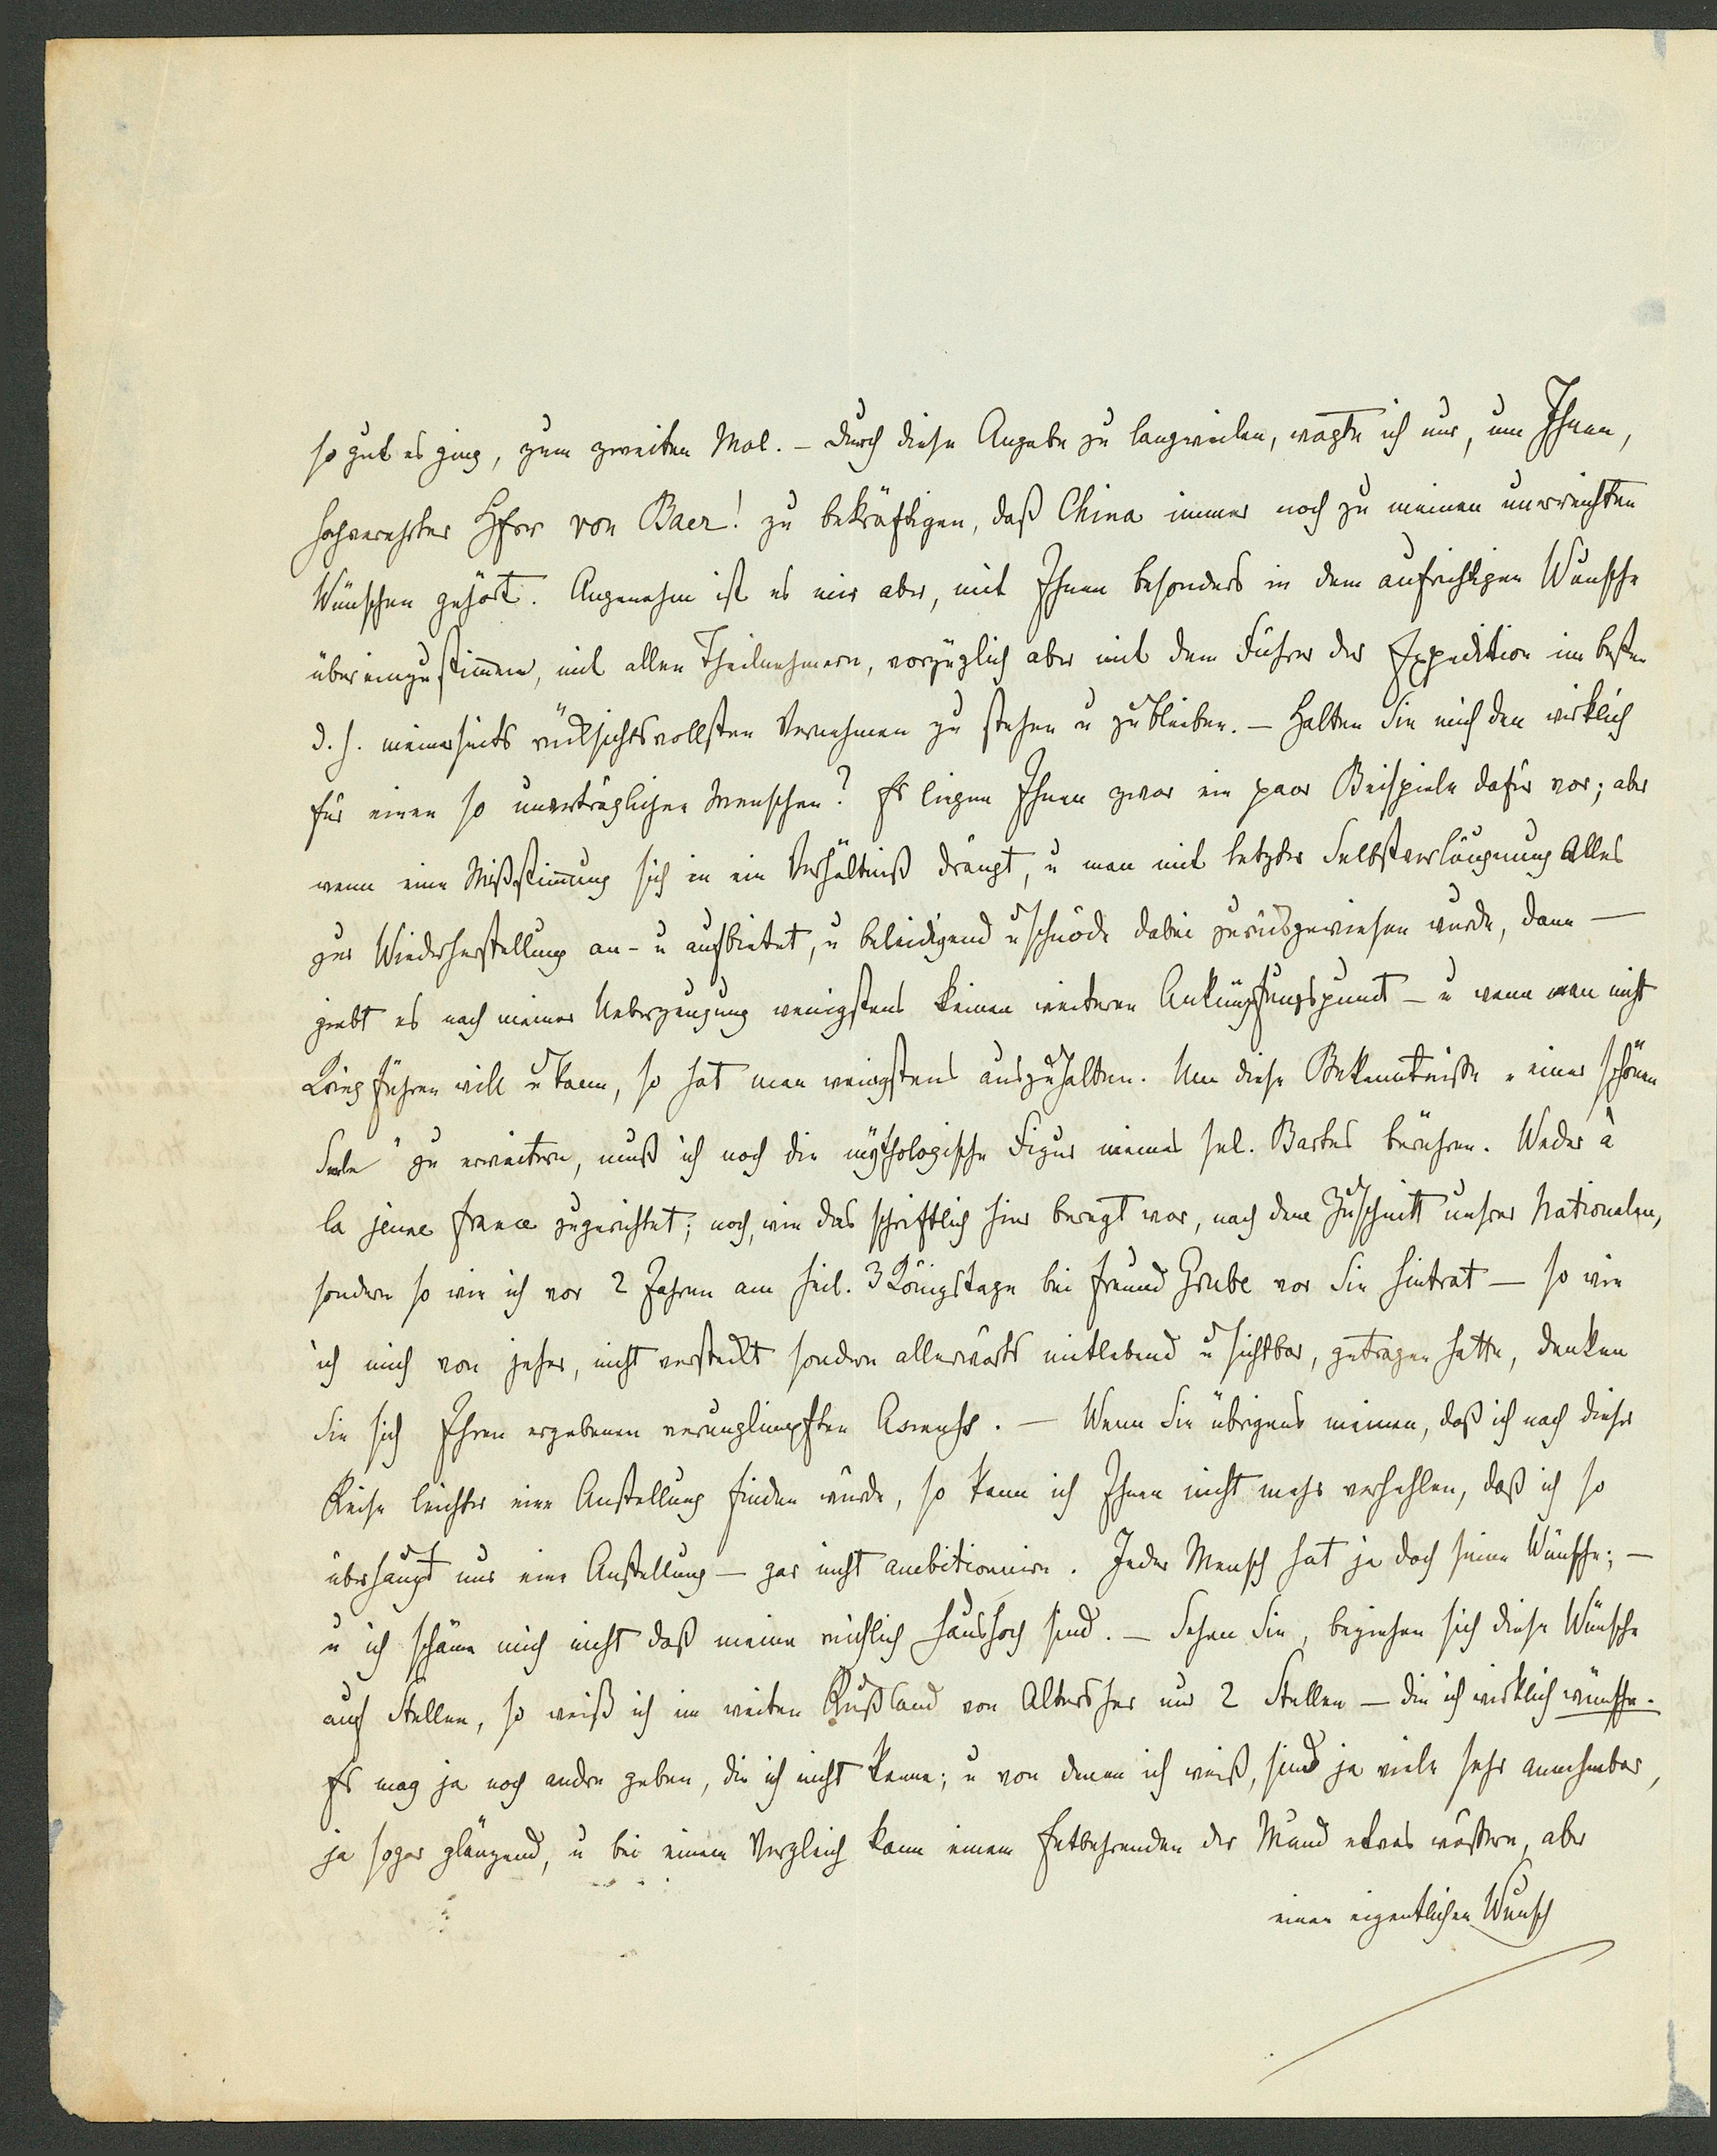 so gut es ging, zum zweiten Mal. – Durch diese Angabe zu langweilen, wagte ich nur, um Ihnen,
hochverehrter Herr von Baer! zu bekräftigen, daß China immer noch zu meinen unerreichten
Wünschen gehört. Angenehm ist es mir aber, mit Ihnen besonders in dem aufrichtigen Wunsche
übereinzustimmen, mit allen Theilnehmern, vorzüglich aber mit dem Führer der Expedition im besten
d. h. meinerseits rücksichtsvollsten Vernehmen zu stehen u zu bleiben. – Halten Sie mich den wirklich
für einen so unverträglichen Menschen? Es liegen Ihnen zwar ein paar Beispiele dafür vor; aber
wenn eine Mißstimmung sich in ein Verhältniß drängt, u man mit letzter Selbstverläugnung Alles
zur Wiederherstellung an- u aufbietet, u beleidigend u schnöde dabei zurückgewiesen wurde, dann –
giebt es nach meiner Ueberzeugung wenigstens keinen weiteren Anknüpfungspunct – u wenn man nicht
Krieg führen will u kann, so hat man wenigstens auszuhalten. Um diese Bekenntnisse „einer schönen
Seele" zu erweitern, muß ich noch die mythologische Figur meines sel. Bartes berühren. Weder à
la jeune france zugerichtet; noch, wie das schriftlich hier beregt war, nach dem Zuschnitt unsrer Nationalen,
sondern so wie ich vor 2 Jahren am heil. 3 Königstage bei Freund Grube vor Sie hintrat – so wie
ich mich von jeher, nicht versteckt sondern allerwärts mitlebend u sichtbar, getragen hatte, denken
Sie sich Ihren ergebenen verunglimpften . – Wenn Sie übrigens meinen, daß ich nach dieser
Reise leichter eine Anstellung finden würde, so kann ich Ihnen nicht mehr verhehlen, daß ich so
überhaupt nur eine Anstellung – gar nicht ambitionnire. Jeder Mensch hat ja doch seine Wünsche; –
u ich schäme mich nicht daß meine reichlich haushoch sind. – Sehen Sie, beziehen sich diese Wünsche
auf Stellen, so weiß ich im weiten Rußland von Alters her nur 2 Stellen – die ich wirklich wünsche.
Es mag ja noch andre geben, die ich nicht kenne; u von denen ich weiß, sind ja viele sehr annehmbar,
ja sogar glänzend, u bei einem Vergleich kann einem Entbehrenden der Mund etwas wässern, aber
einen eigentlichen Wunsch